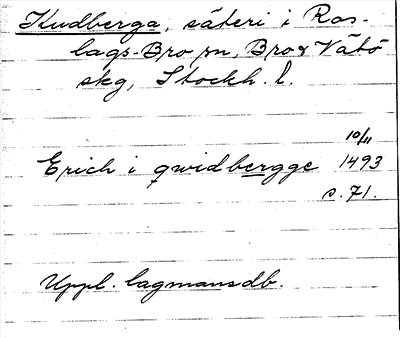 Kudberga, säteri i Ros-
lags-Bro sn, Bro & Vätö
skg, Stockh. l.
10/11
Erich i qwidbergge 1493
s. 71.
Uppl. lagmansdb.